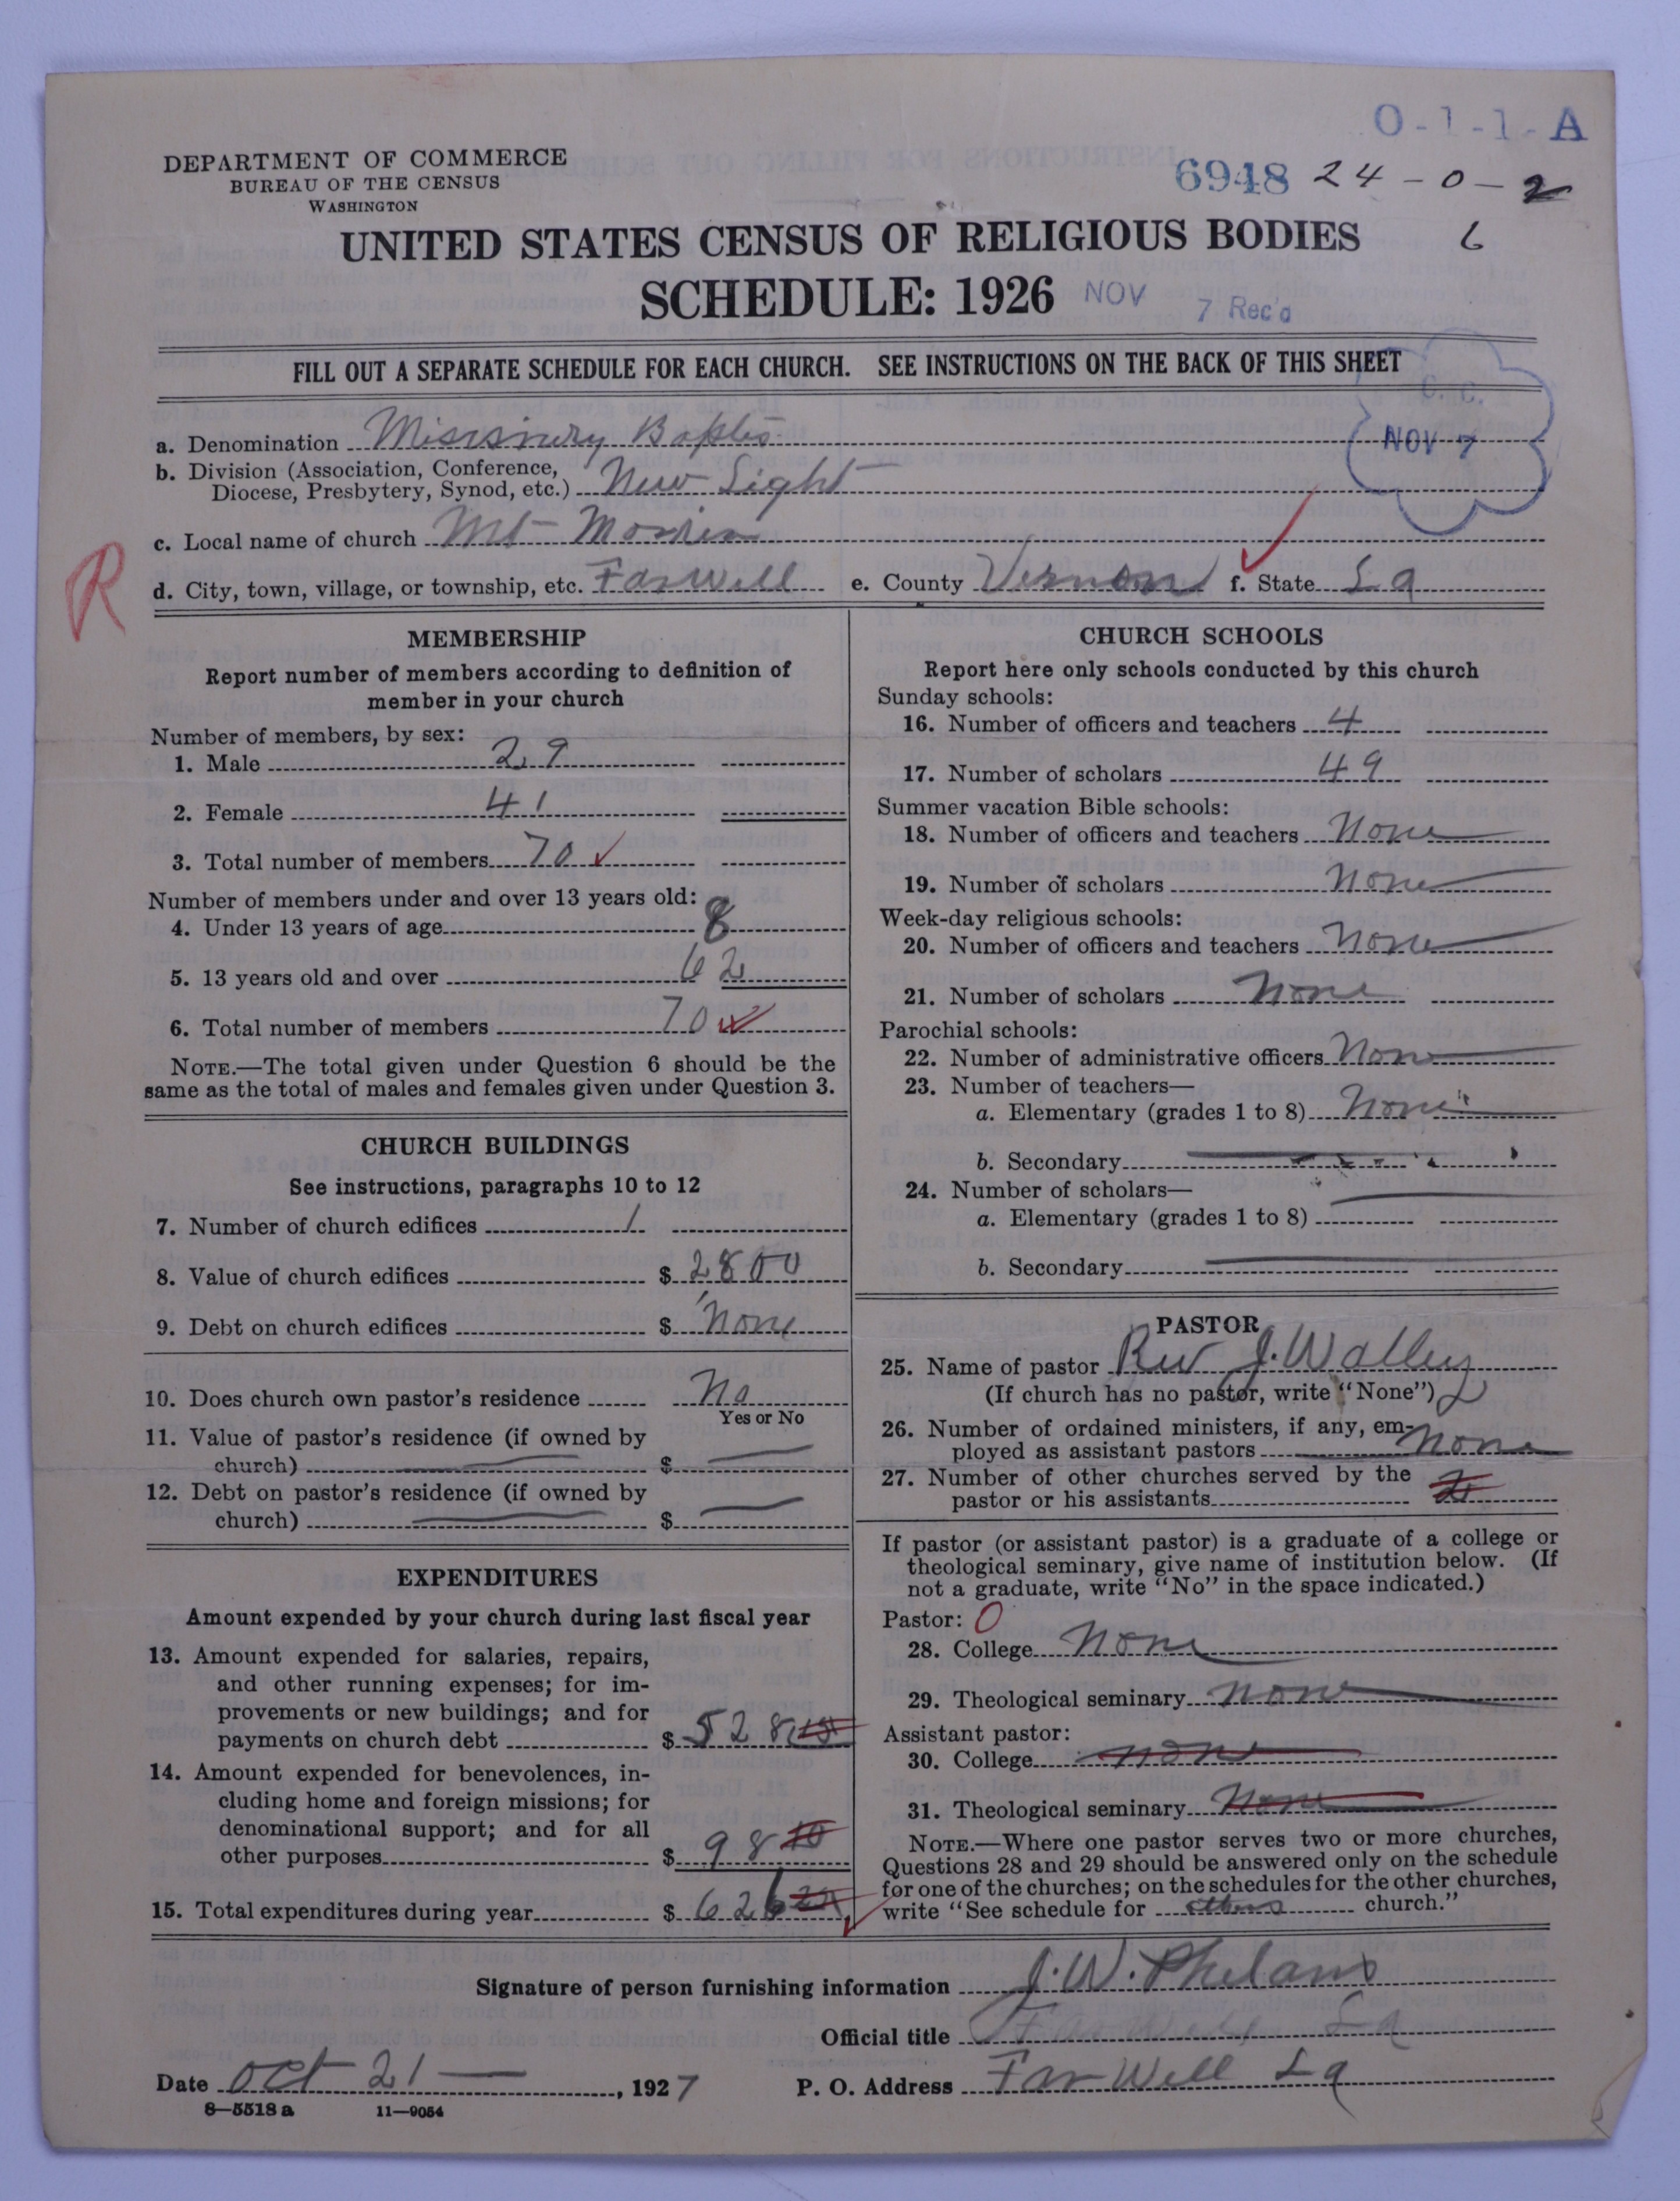 O-1-1-A
DEPARTMENT OF COMMERCE
BUREAU OF THE CENSUS
WASHINGTON
6948 24-0-2
6
UNITED STATES CENSUS OF RELIGIOUS BODIES
SCHEDULE: 1926
NOV 7 Rec'd
FILL OUT A SEPARATE SCHEDULE FOR EACH CHURCH. SEE INSTRUCTIONS ON THE BACK OF THIS SHEET
C. C.
NOV 7
a. Denomination
b. Division (Association, Conference,
Diocese, Presbytery, Synod, etc.) New Light
c. Local name of church Mt
R
d. City, town, village, or township, etc. Farwell e. County Vernon f. State La
MEMBERSHIP
Report number of members according to definition of
member in your church
Number of members, by sex:
1. Male 29
2. Female 41
3. Total number of members 70
Number of members under and over 13 years old:
4. Under 13 years of age 8
5. 13 years old and over 62
6. Total number of members 70
NOTE.—The total given under Question 6 should be the
same as the total of males and females given under Question 3.
CHURCH BUILDINGS
See instructions, paragraphs 10 to 12
7. Number of church edifices 1
8. Value of church edifices $ 2800
9. Debt on church edifices $ None
10. Does church own pastor's residence No
Yes or No
11. Value of pastor's residence (if owned by
church) $
12. Debt on pastor's residence (if owned by
church) $
EXPENDITURES
Amount expended by your church during last fiscal year
13. Amount expended for salaries, repairs,
and other running expenses; for im-
provements or new buildings; and for
payments on church debt $ 528
14. Amount expended for benevolences, in-
cluding home and foreign missions; for
denominational support; and for all
other purposes $ 98
15. Total expenditures during year $ 626
CHURCH SCHOOLS
Report here only schools conducted by this church
Sunday schools:
16. Number of officers and teachers 4
17. Number of scholars 49
Summer vacation Bible schools:
18. Number of officers and teachers None
19. Number of scholars None
Week-day religious schools:
20. Number of officers and teachers None
21. Number of scholars None
Parochial schools:
22. Number of administrative officers None
23. Number of teachers—
a. Elementary (grades 1 to 8) None
b. Secondary
24. Number of scholars—
a. Elementary (grades 1 to 8)
b. Secondary
PASTOR
25. Name of pastor Rev J. Walley
(If church has no pastor, write "None") 2
26. Number of ordained ministers, if any, em-
ployed as assistant pastors None
27. Number of other churches served by the
pastor or his assistants 2
If pastor (or assistant pastor) is a graduate of a college or
theological seminary, give name of institution below. (If
not a graduate, write "No" in the space indicated.)
Pastor: 0
28. College None
29. Theological seminary None
Assistant pastor:
30. College None
31. Theological seminary None
NOTE.—Where one pastor serves two or more churches,
Questions 28 and 29 should be answered only on the schedule
for one of the churches; on the schedules for the other churches,
write "See schedule for others church."
Signature of person furnishing information J. W. Phelans
Official title Farwell La
Date Oct 21, 1927 P. O. Address Farwell La
8—5518 a 11—9054